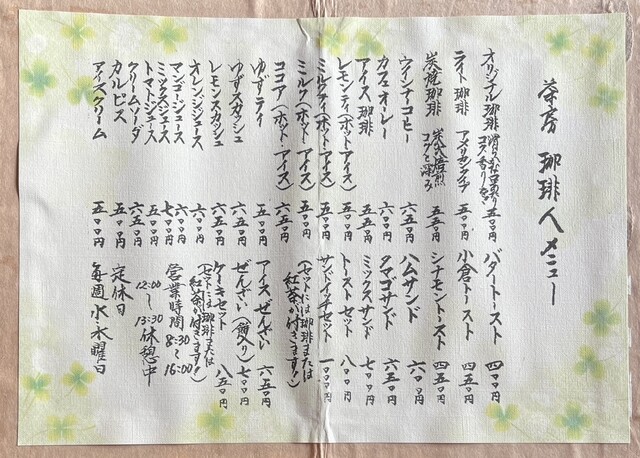 茶房 珈琲人メニュー
オリジナル珈琲 滑らかな口当り 五〇〇円
ライト珈琲 アメリカンタイプ 五〇〇円
炭焼珈琲 炭火焙煎 コクと深み 五五〇円
ウインナーコーヒー 六五〇円
カフェオーレー 六〇〇円
アイス珈琲 五五〇円
レモンティ(ホット・アイス) 五五〇円
ミルクティ(ホット・アイス) 五五〇円
ミルク(ホット・アイス) 五五〇円
ココア(ホット・アイス) 六五〇円
ゆずティ 五五〇円
ゆずスカッシュ 六五〇円
レモンスカッシュ 六五〇円
オレンジジュース 六〇〇円
マンゴージュース 六〇〇円
ミックスジュース 七〇〇円
トマトジュース 五〇〇円
クリームソーダ 六五〇円
カルピス 五〇〇円
アイスクリーム 五〇〇円
バタートースト 四〇〇円
小倉トースト 四五〇円
シナモントースト 四五〇円
ハムサンド 六〇〇円
タマゴサンド 六五〇円
ミックスサンド 七〇〇円
トーストセット 八〇〇円
サンドイッチセット 一〇〇〇円
(セットには珈琲または
紅茶が付きます!)
アイスぜんざい 六五〇円
ぜんざい(餅入り) 七〇〇円
ケーキセット 八五〇円
(セットには珈琲または
紅茶が付きます!)
営業時間 8:30〜16:00
12:00〜13:30休憩中
定休日
毎週水・木曜日